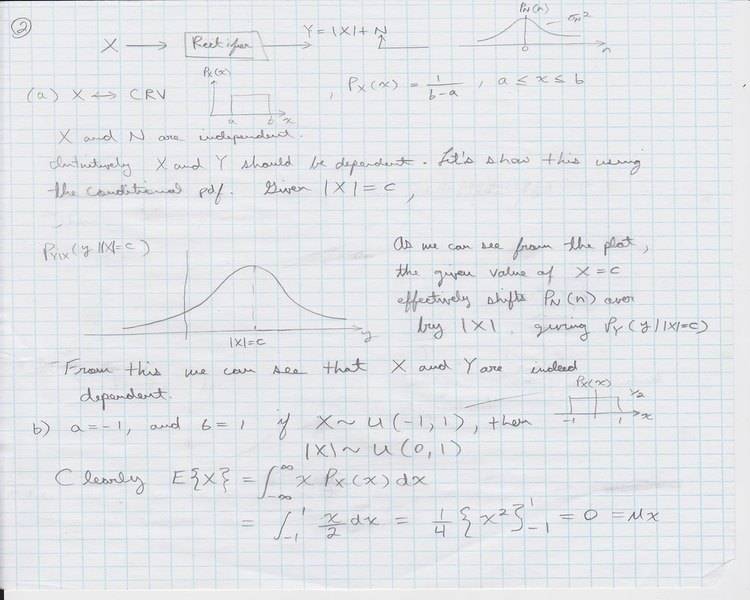 ②
X → Rectifier → Y = |X| + N
P_N(n)
σ_N²
0
n
(a) X ↔ CRV
P_X(x)
a b x
, P_X(x) = 1/(b-a) , a ≤ x ≤ b
X and N are independent.
Intuitively X and Y should be dependent. Let's show this using
the conditional pdf. Given |X| = c,
P_Y|X(y ||X|=c)
|X|=c
y
As we can see from the plot,
the given value of X = c
effectively shifts P_N(n) over
by |X| giving P_Y(y ||X|=c)
From this we can see that X and Y are indeed
dependent.
P_X(x)
1/2
-1 1 x
b) a=-1, and b=1 if X ~ U(-1,1), then
|X| ~ U(0,1)
Clearly E{X} = ∫_{-∞}^{∞} x P_X(x) dx
= ∫_{-1}^{1} x/2 dx = 1/4 {x²}_{-1}^{1} = 0 = μ_X